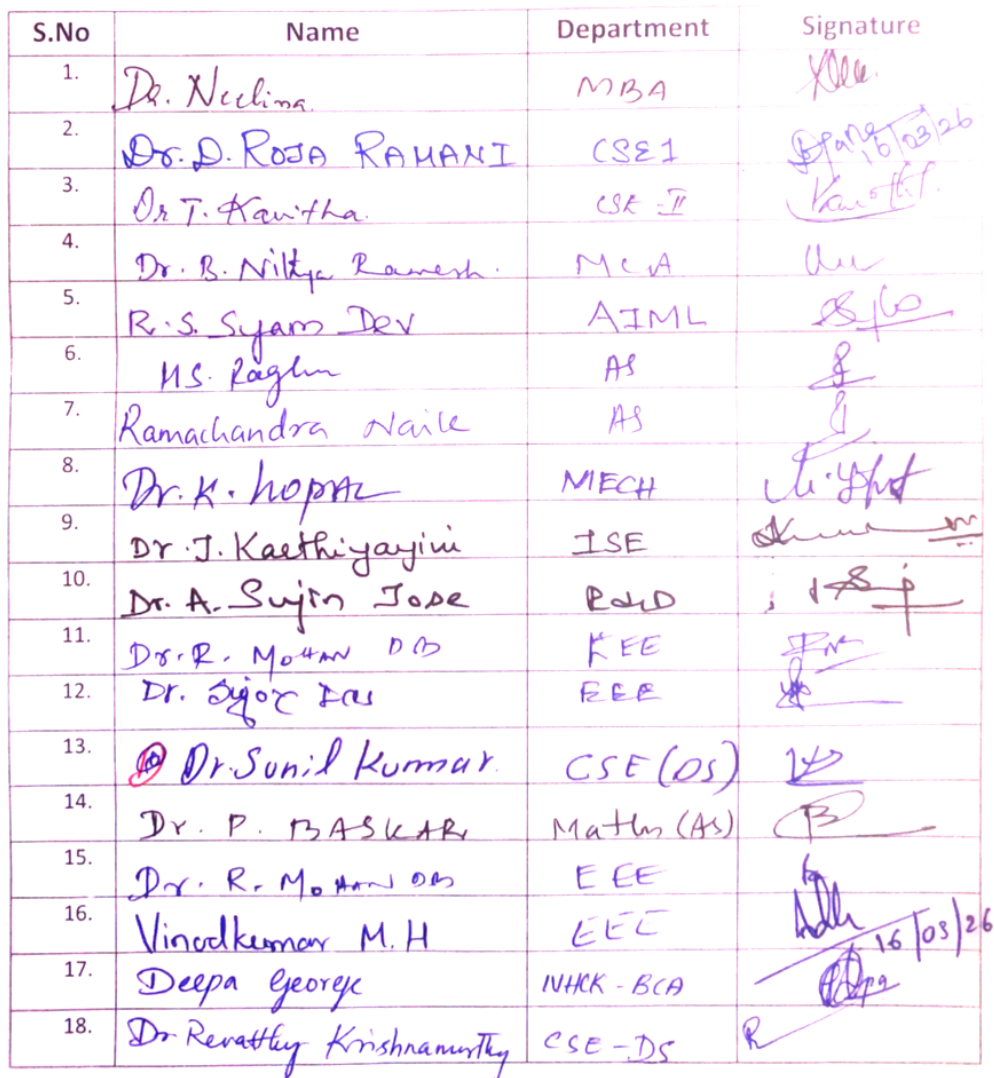 S.No Name Department Signature
1. Dr. Neelina. MBA
2. Dr. D. ROJA RAMANI CSE1 16/03/26
3. Dr T. Kavitha. CSE-II
4. Dr. B. Nithya Ramesh. MCA
5. R.S. Syam Dev AIML
6. M.S. Raghu AS
7. Ramachandra Naik AS
8. Dr. K. GOPAL MECH
9. Dr. J. Karthiyayini ISE
10. Dr. A. Sujin Jose R&D
11. Dr. R. MOHAN DB EEE
12. Dr. EEE
13. Dr. Sunil Kumar. CSE(DS)
14. Dr. P. BASKAR Maths (AS)
15. Dr. R. MOHAN DB EEE
16. Vinodkumar M.H EEE 16/03/26
17. Deepa George NHCK-BCA
18. Dr Revathy Krishnamurthy CSE-DS